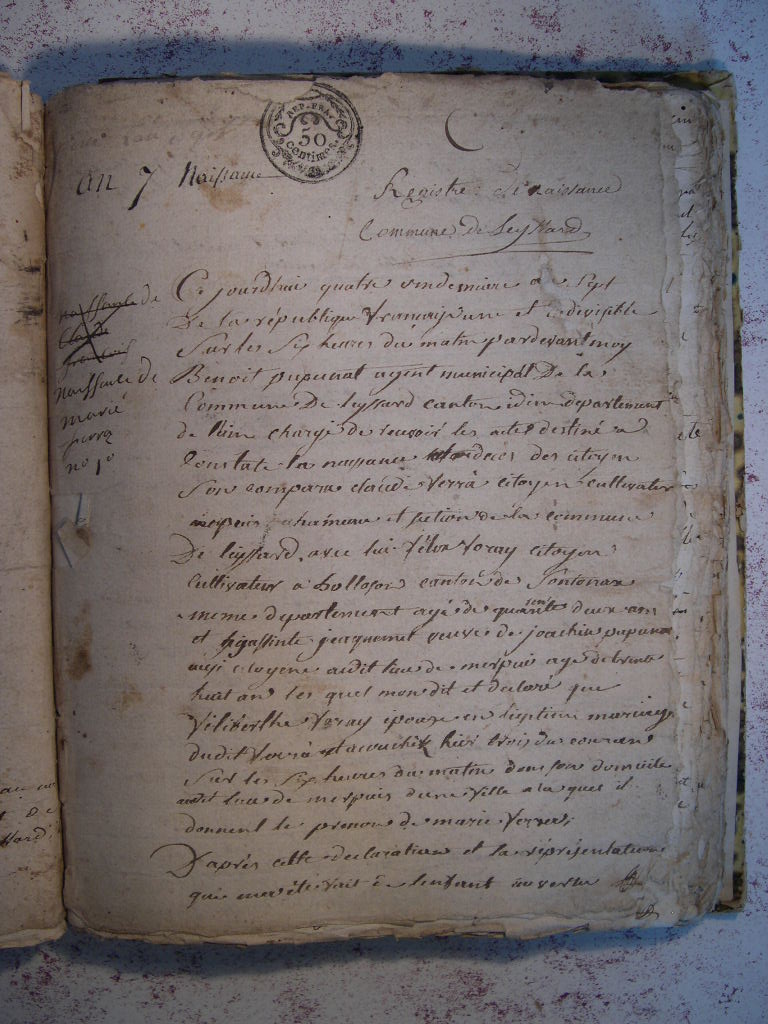 REP. FRA.
50
centimes
an 7 Naissance
Registre de naissance
Commune de Leyssard
naissance de
Claude
francois
naissance de
marie
no 1o
Ce jourdhui quatre vendemiaire an Sept
De la république francaise une et indivisible
Sur les Six heures du matin pardevant moy
Benoit pupunat agent municipal De la
Commune De leyssard canton departement
de lain chargé De recevoir les actes destiné a
Constate la naissance et deces des citoyen
Son compara claude Verra citoyen cultivateur
hameau et section de la commune
De leyssard avec lui Veray citoyen
Cultivateur a Bolloson canton de Sontonax
meme departement agé de quarente deux ans
et jacquemet veuve de joachin pupunat
aussi citoyene audit lieu de merpuis age de trente
huit an les quel mon dit et declaré que
Veray epouse en mariage
dudit Verra acouchée hier trois du courant
Sur les Six heures du matin dans son domicile
audit lieu de merpuis dune fille a la quel il
donnent le prenom de marie Verra
D'apres cette declaration et la représentation
qui ma été fait de lenfant